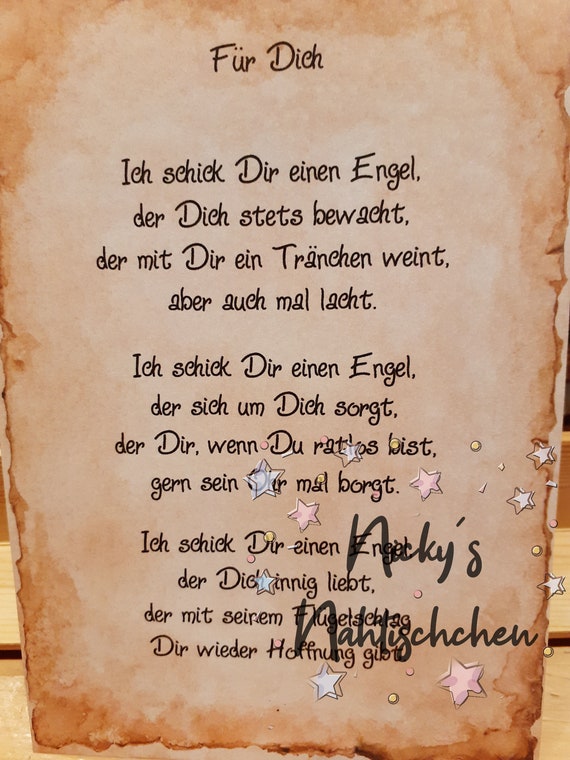 Für Dich
Ich schick Dir einen Engel,
der Dich stets bewacht,
der mit Dir ein Tränchen weint,
aber auch mal lacht.
Ich schick Dir einen Engel,
der sich um Dich sorgt,
der Dir, wenn Du ratlos bist,
gern sein Ohr mal borgt.
Ich schick Dir einen Engel
der Dich innig liebt,
der mit seinem Flügelschlag
Dir wieder Hoffnung gibt.
Nicky´s
Nähtischchen